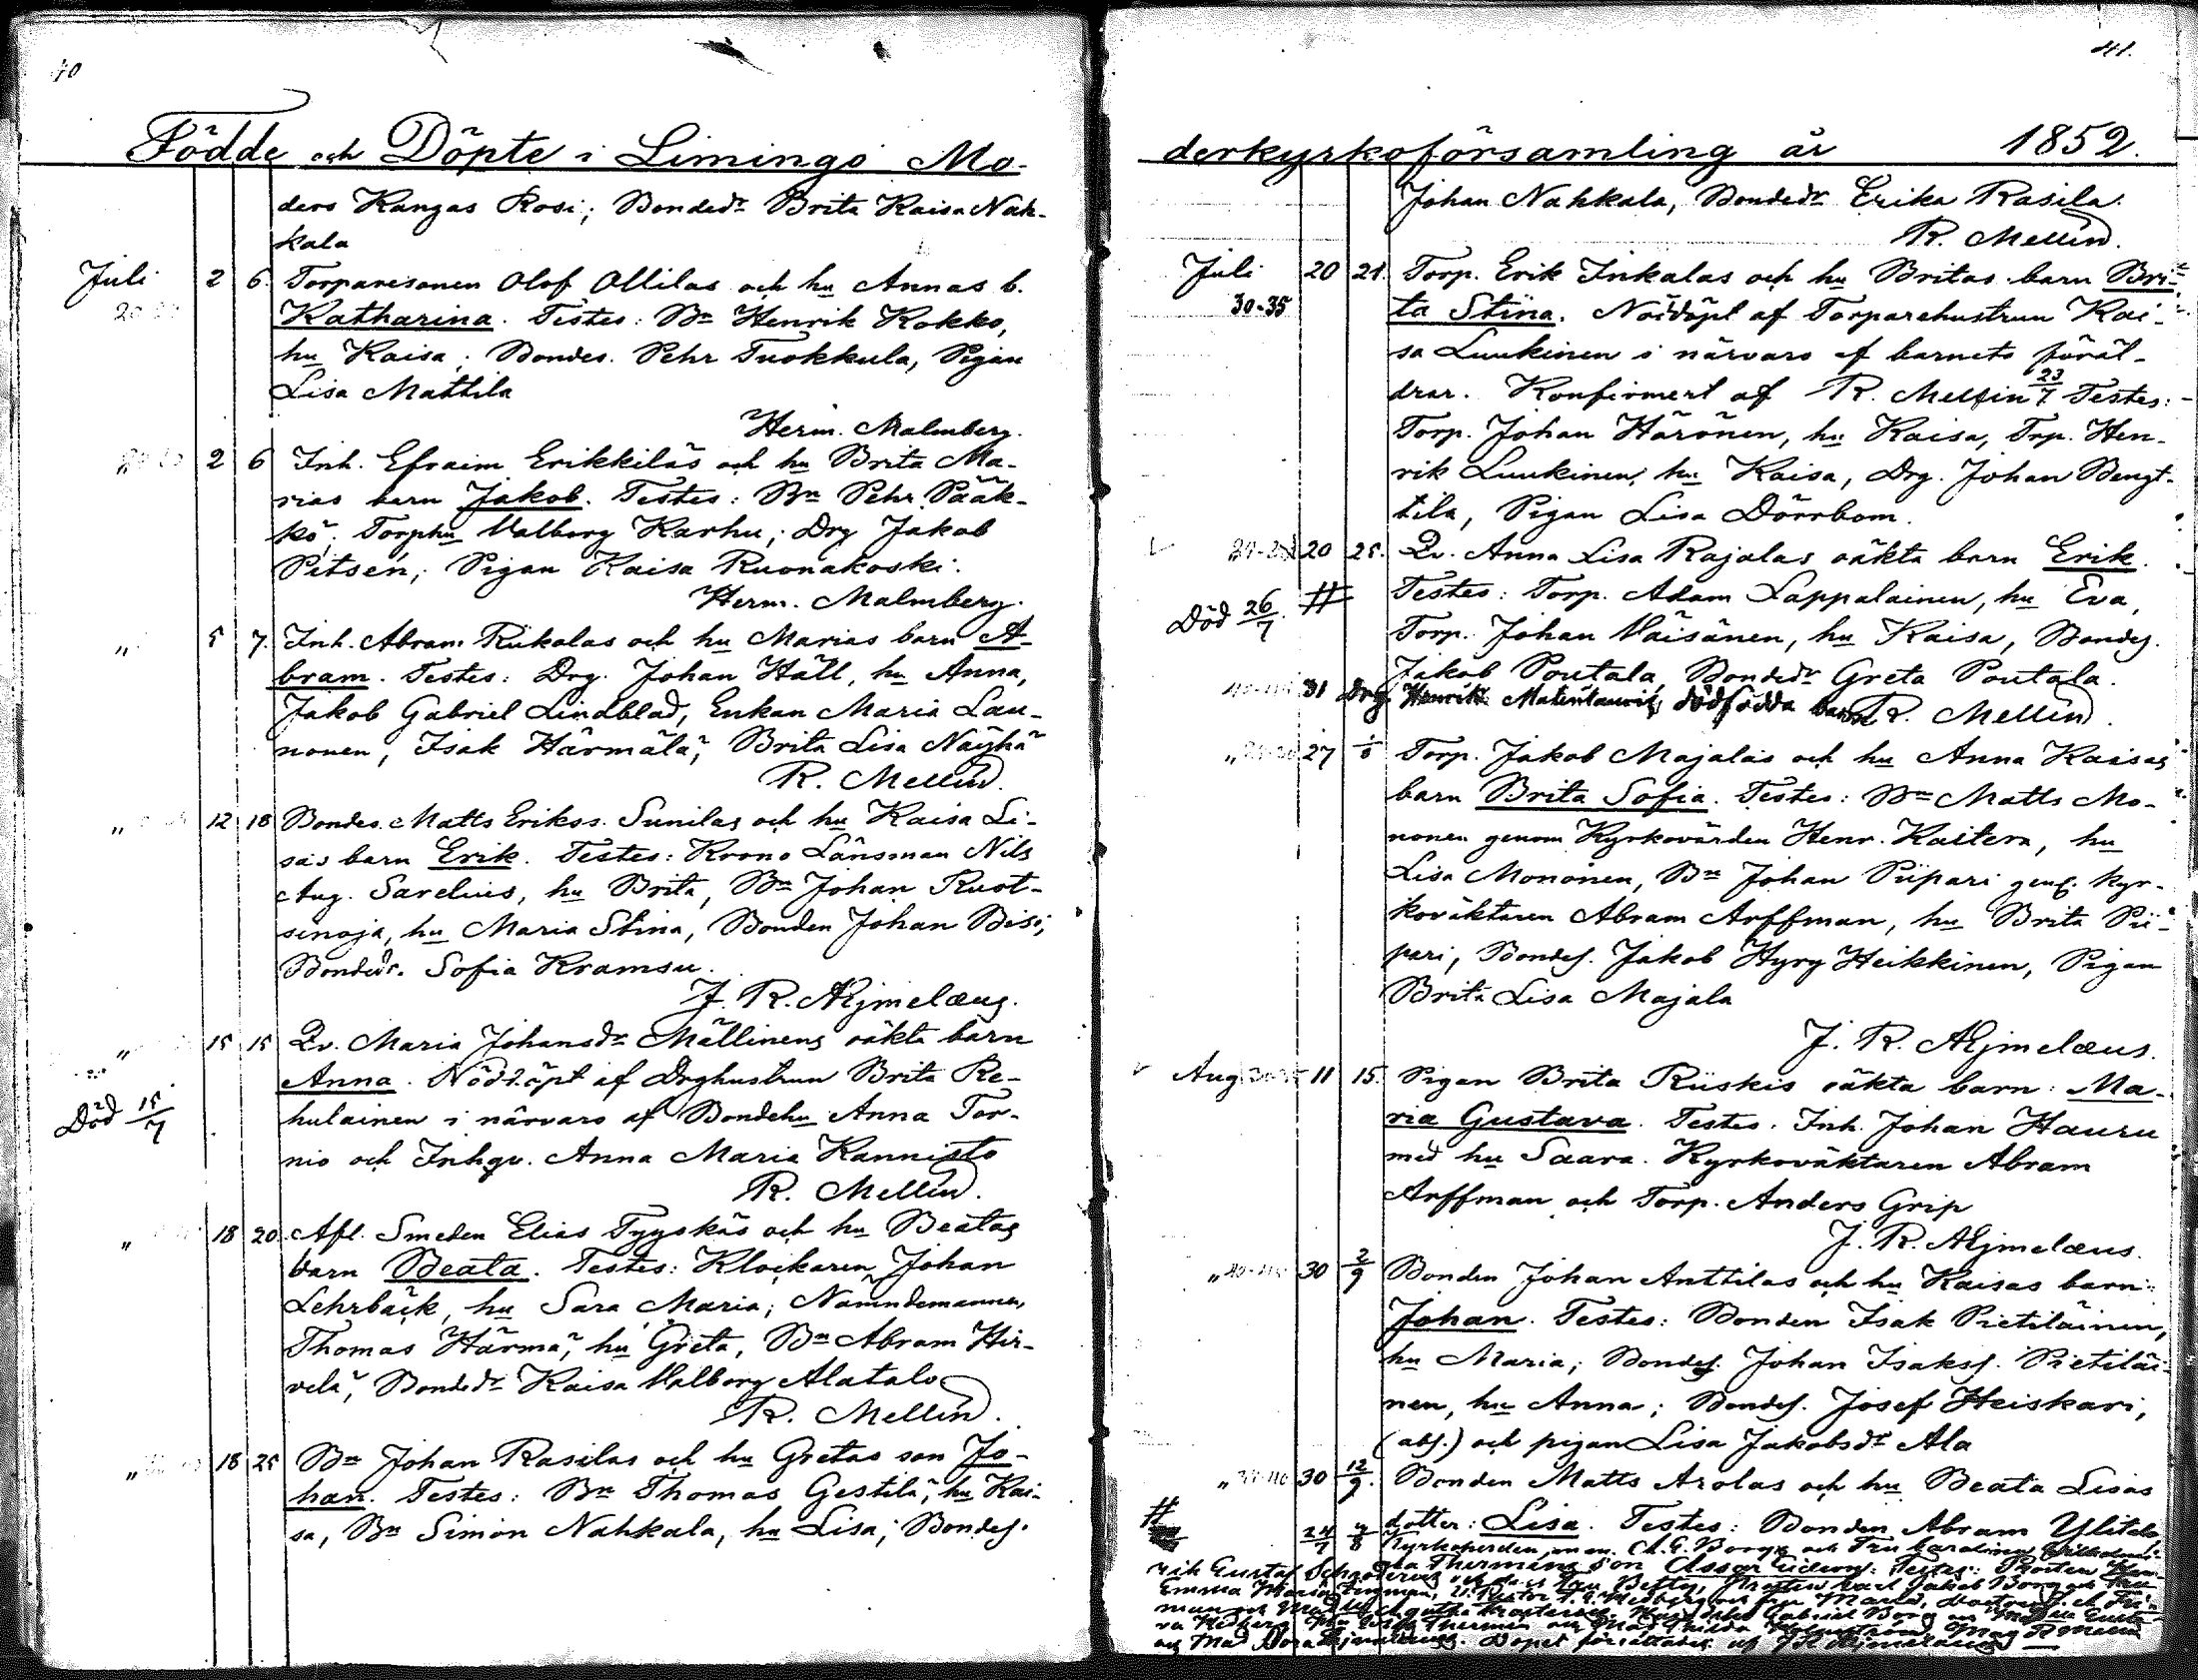 40
Födde och Döpte i Limingo Mo-
ders Kangas Rosi; Bondedr Brita Kaisa Nah-
kala
Juli 2 6. Torparesonen Olof Ollilas och hu Annas b.
Katharina. Testes: Bn Henrik Kokko,
hu Kaisa; Bondes. Pehr Tuokkula, Pigan
Lisa Mattila
Herm. Malmberg.
2 6 Inh. Efraim Erikkiläs och hu Brita Ma-
rias barn Jakob. Testes: Bn Pehr Pääk-
kö; Torphu Valborg Karhu; Drg Jakob
Pitsén; Pigan Kaisa Ruonakoski.
Herm. Malmberg.
„ 5 7. Inh. Abram Riikolas och hu Marias barn A-
bram. Testes: Drg. Johan Häll, hu Anna,
Jakob Gabriel Lindblad, Enkan Maria Lau-
nonen, Isak Härmälä, Brita Lisa Näyhä
R. Mellin.
„ 12 18 Bondes. Matts Erikss. Sunilas och hu Kaisa Li-
sas barn Erik. Testes: Krono Länsman Nils
Aug. Sarelius, hu Brita, Bn Johan Ruot-
sinoja, hu Maria Stina, Bonden Johan Bisi,
Bondedr. Sofia Kramsu.
J. R. Ajmelæus.
„ 15 15 Qv. Maria Johansdr Mällinens oäkta barn
Anna. Nöddöpt af Drghustrun Brita Re-
Död 15/7 hulainen i närvaro af Bondehu Anna Tor-
nio och Inhqv. Anna Maria Kannisto
R. Mellin.
„ 18 20. Afl. Smeden Elias Tyyskäs och hu Beatas
barn Beata. Testes: Klockaren Johan
Lehrbäck, hu Sara Maria; Nämndemannen
Thomas Härmä, hu Greta, Bn Abram Hir-
velä, Bondedr Kaisa Valborg Alatalo
R. Mellin.
„ 18 25 Bn Johan Rasilas och hu Gretas son Jo-
han. Testes: Bn Thomas Gestilä, hu Kai-
sa, Bn Simon Nahkala, hu Lisa; Bondes.
41.
derkyrkoförsamling år 1852.
Johan Nahkala, Bondedr Erika Rasila.
R. Mellin.
Juli 20 21. Torp. Erik Inkalas och hu Britas barn Bri-
30-35 ta Stina. Nöddöpt af Torparehustrun Kai-
sa Luukinen i närvaro af barnets föräl-
drar. Konfirmert af R. Mellin 23/7 Testes:
Torp. Johan Härönen, hu Kaisa, Trp. Hen-
rik Luukinen, hu Kaisa, Drg. Johan Bengt-
tila, Pigan Lisa Dörrbom.
20 25. Qv. Anna Lisa Rajalas oäkta barn Erik.
Död 26/7. # Testes: Torp. Adam Lappalainen, hu Eva,
Torp. Johan Väisänen, hu Kaisa, Bondes.
Jakob Poutala, Bondedr Greta Poutala.
31 Drg Henrik Matinlauris dödfödda barn R. Mellin.
„ 27 1/8 Torp. Jakob Majalas och hu Anna Kaisas
barn Brita Sofia. Testes: Bn Matts Mo-
nonen genom Kyrkovärden Henr. Kaitera, hu
Lisa Mononen, Bn Johan Piipari gen. Kyr-
koväktaren Abram Arffman, hu Brita Pii-
pari, Bondes. Jakob Hyry Heikkinen, Pigan
Brita Lisa Majala
J. R. Ajmelæus.
Aug 11 15. Pigan Brita Riiskis oäkta barn: Ma-
ria Gustava. Testes. Inh. Johan Hauru
med hu Saara. Kyrkoväktaren Abram
Arffman och Torp. Anders Grip
J. R. Ajmelæus.
„ 30 2/9 Bonden Johan Anttilas och hu Kaisas barn:
Johan. Testes: Bonden Isak Pietiläinen,
hu Maria; Bondes. Johan Isakss. Pietiläi-
nen, hu Anna; Bondes. Josef Heiskari,
(abs.) och pigan Lisa Jakobsdr Ala
„ 30 12/9. Bonden Matts Arolas och hu Beata Lisas
# dotter: Lisa. Testes: Bonden Abram Ylitalo
24/7 Kyrkoherden m.m. Borg och Fru Carolina
Thermens son Assar. Testes: Prosten
rik Gustaf Betty, Prosten Carl Jakob Borg och Fru
Emma Maria
Gabriel Borg
Hedberg
och Mad Dopet förrättades af J R Ajmelæus